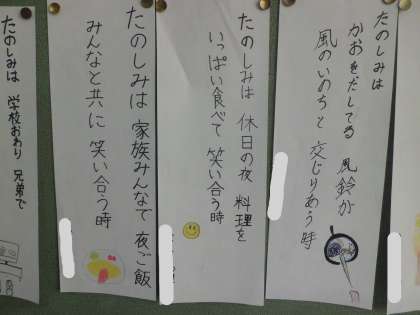 たのしみは
かおをだしてる 風鈴が
風のいのちと 交じりあう時
たのしみは 休日の夜 料理を
いっぱい食べて 笑い合う時
たのしみは 家族みんなで 夜ご飯
みんなと共に 笑い合う時
たのしみは 学校おわり 兄弟で